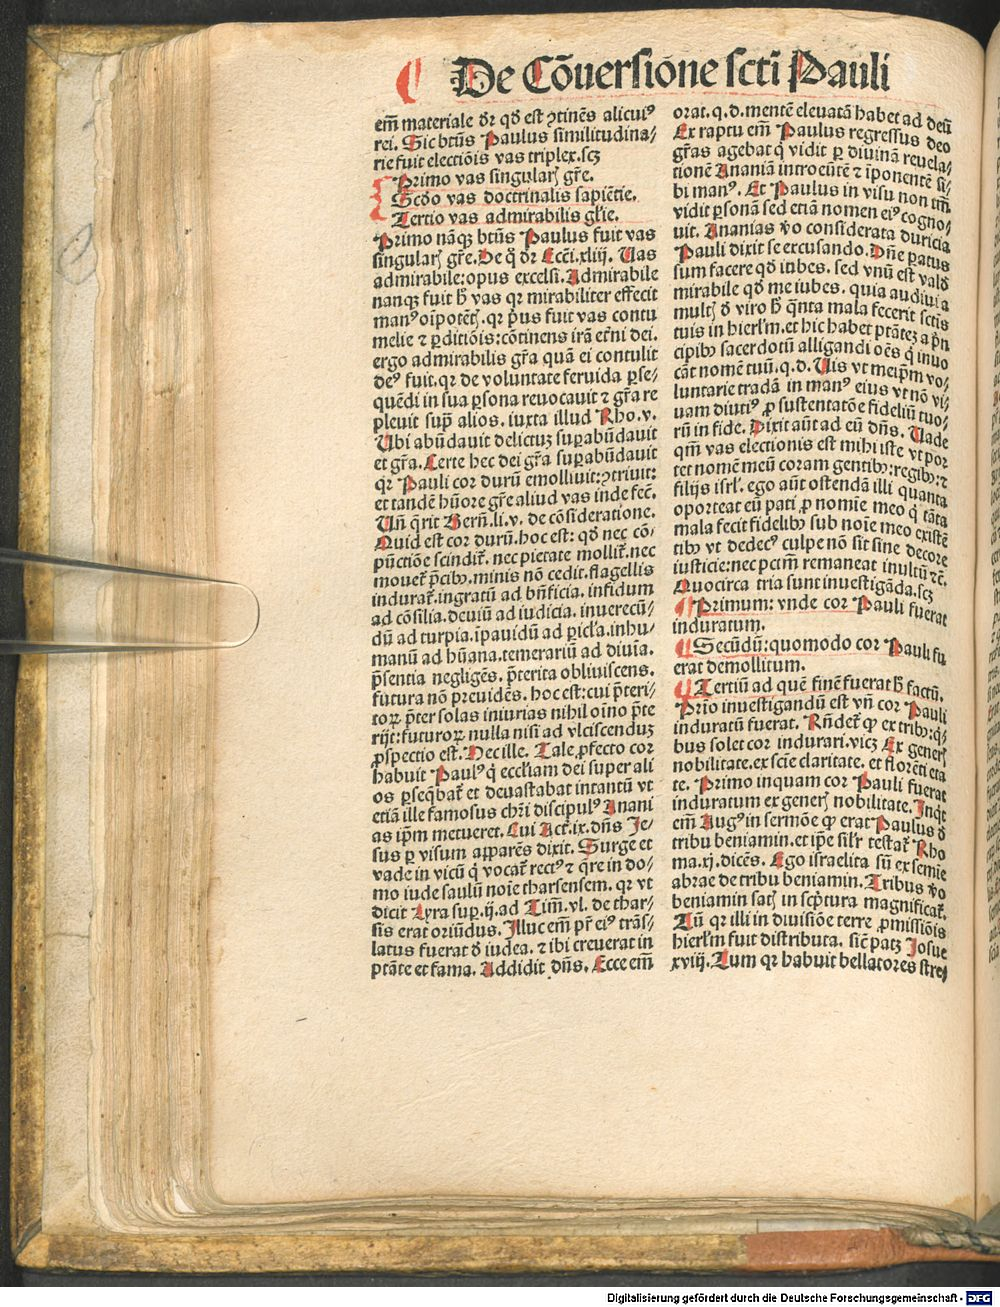 De Cōuersiōne scti Pauli
em̄ materiale dr̄ qd̓ est ꝯtinēs alicuiꝰ
rei. Sic btūs Paulus similitudina/
rie fuit electiōis vas triplex.scꝫ
Primo vas singularꝭ gr̄e.
Scd̓o vas doctrinalis sapiētie.
Tertio vas admirabilis gl̄ie.
Primo nāqꝫ btūs Paulus fuit vas
singularꝭ gr̄e. De q̄ dr̄ Ecci.xliij. Uas
admirabile: opus excelsi. Admirabile
nanqꝫ fuit h̓ vas qr mirabiliter effecit
manꝰ oīpotētꝭ. qr pͥus fuit vas contu
melie ⁊ ꝑditiōis: cōtinens irā et̓ni dei.
ergo admirabilis gr̄a quā ei contulit
deꝰ fuit. qr de voluntate feruida ꝑse/
quēdi in sua ꝑsona reuocauit ⁊ gr̄a re
pleuit supͣ alios. iuxta illud Rho. v.
Ubi abūdauit delictuꝫ suꝑabūdauit
et gr̄a. Certe hec dei gr̄a suꝑabūdauit
qr Pauli cor durū emolliuit: ꝯtriuit:
et tandē hūore gr̄e aliud vas inde fec̄.
Un̄ q̄rit Bern̄. li. v. de cōsideratione.
Quid est cor durū. hoc est: qd̓ nec cō/
pūctiōe scindit̄. nec pietate mollit̄. nec
mouet̄ p̄cibꝰ. minis nō cedit. flagellis
indurat̄. ingratū ad bn̄ficia. infidum
ad cōsilia. deuiū ad iudicia. inuerecū/
dū ad turpia. īpauidū ad ꝑicl̓a. inhu/
manū ad hūana. temerariū ad diuia.
p̄sentia negligēs. p̄terita obliuiscens.
futura nō preuidēs. hoc est: cui p̄teri/
toꝝ p̄ter solas iniurias nihil oīno p̄te
rijt: futuroꝝ nulla nisi ad vlciscenduꝫ
ꝓspectio est. Hec ille. Tale ꝓfecto cor
habuit Paulꝰ q̄ eccl̓iam dei super ali
os ꝑseq̄bat̄ et deuastabat intantū vt
etiā ille famosus chr̄i discipulꝰ Anani
as ip̄m metueret. Cui Act̄. ix. dn̄s Je/
sus ꝑ visum apparēs dixit. Surge et
vade in vicū q̄ vocat̄ rectꝰ ⁊ q̄re in do/
mo iude saulū noīe tharsensem. qr vt
dicit Lyra suꝑ. ij. ad Tim̄. vl. de thar/
sis erat oriūdus. Illuc em̄ pr̄ eiꝰ trās/
latus fuerat d̓ iudea. ⁊ ibi creuerat in
ptāte et fama. Addidit dn̄s. Ecce em̄
orat. q. d. mentē eleuatā habet ad deū
Ex raptu em̄ Paulus regressus deo
gr̄as agebat q̄ vidit ꝑ diuinā reuela/
tionē Ananiā introeūtē ⁊ īponentē si/
bi manꝰ. Et Paulus in visu non tm̄
vidit ꝑsonā sed etiā nomen eiꝰ cogno/
uit. Ananias v̓o considerata duricia
Pauli dixit se excusando. Dn̄e ꝑatus
sum facere qd̓ iubes. sed vnū est vald̓
mirabile qd̓ me iubes. quia audiui a
multꝭ d̓ viro h̓ q̄nta mala fecerit sctīs
tuis in hierl̓m. et hic habet ptātē a pͥn
cipibꝰ sacerdotū alligandi oēs q̄ inuo
cāt nomē tuū. q. d. Uis vt meip̄m vo/
luntarie tradā in manꝰ eius vt nō vi/
uam diutiꝰ ꝓ sustentatōe fideliū tuo/
rū in fide. Dixit aūt ad eū dn̄s. Uade
qm̄ vas electionis est mihi iste vt por
tet nomē meū coram gentibꝰ: regibꝰ: ⁊
filijs isrl̓. ego aūt ostendā illi quanta
oporteat eū pati ꝓ nomīe meo q̄ tāta
mala fecit fidelibꝰ sub noīe meo existē
tibꝰ vt dedecꝰ culpe nō sit sine decore
iusticie: nec pctm̄ remaneat inultū ⁊c̄.
Quocirca tria sunt inuestigāda. scꝫ
Primum: vnde cor Pauli fuerat
induratum.
Secūdū: quomodo cor Pauli fu
erat demollitum.
Tertiū ad quē finē fuerat h̓ factū.
Prīo inuestigandū est vn̄ cor Pauli
induratū fuerat. Rn̄det̄ ꝙ ex tribꝰ: q̄/
bus solet cor indurari. vicꝫ Ex generꝭ
nobilitate. ex scīe claritate. et florēti eta
te. Primo inquam cor Pauli fuerat
induratum ex generꝭ nobilitate. Inqt
em̄ Augꝰ in sermōe ꝙ erat Paulus d̓
tribu beniamin. et ip̄e sil̓r testat̄ Rho
ma. xj. dicēs. Ego israelita sū ex semīe
abrae de tribu beniamin. Tribus v̓o
beniamin satꝭ in scͥptura magnificat̄.
Tū qr illi in diuisiōe terre ꝓmissiōis
hierl̓m fuit distributa. sic̄ patꝫ Josue
xviij. Tum qr habuit bellatores stre/
Digitalisierung gefördert durch die Deutsche Forschungsgemeinschaft - DFG